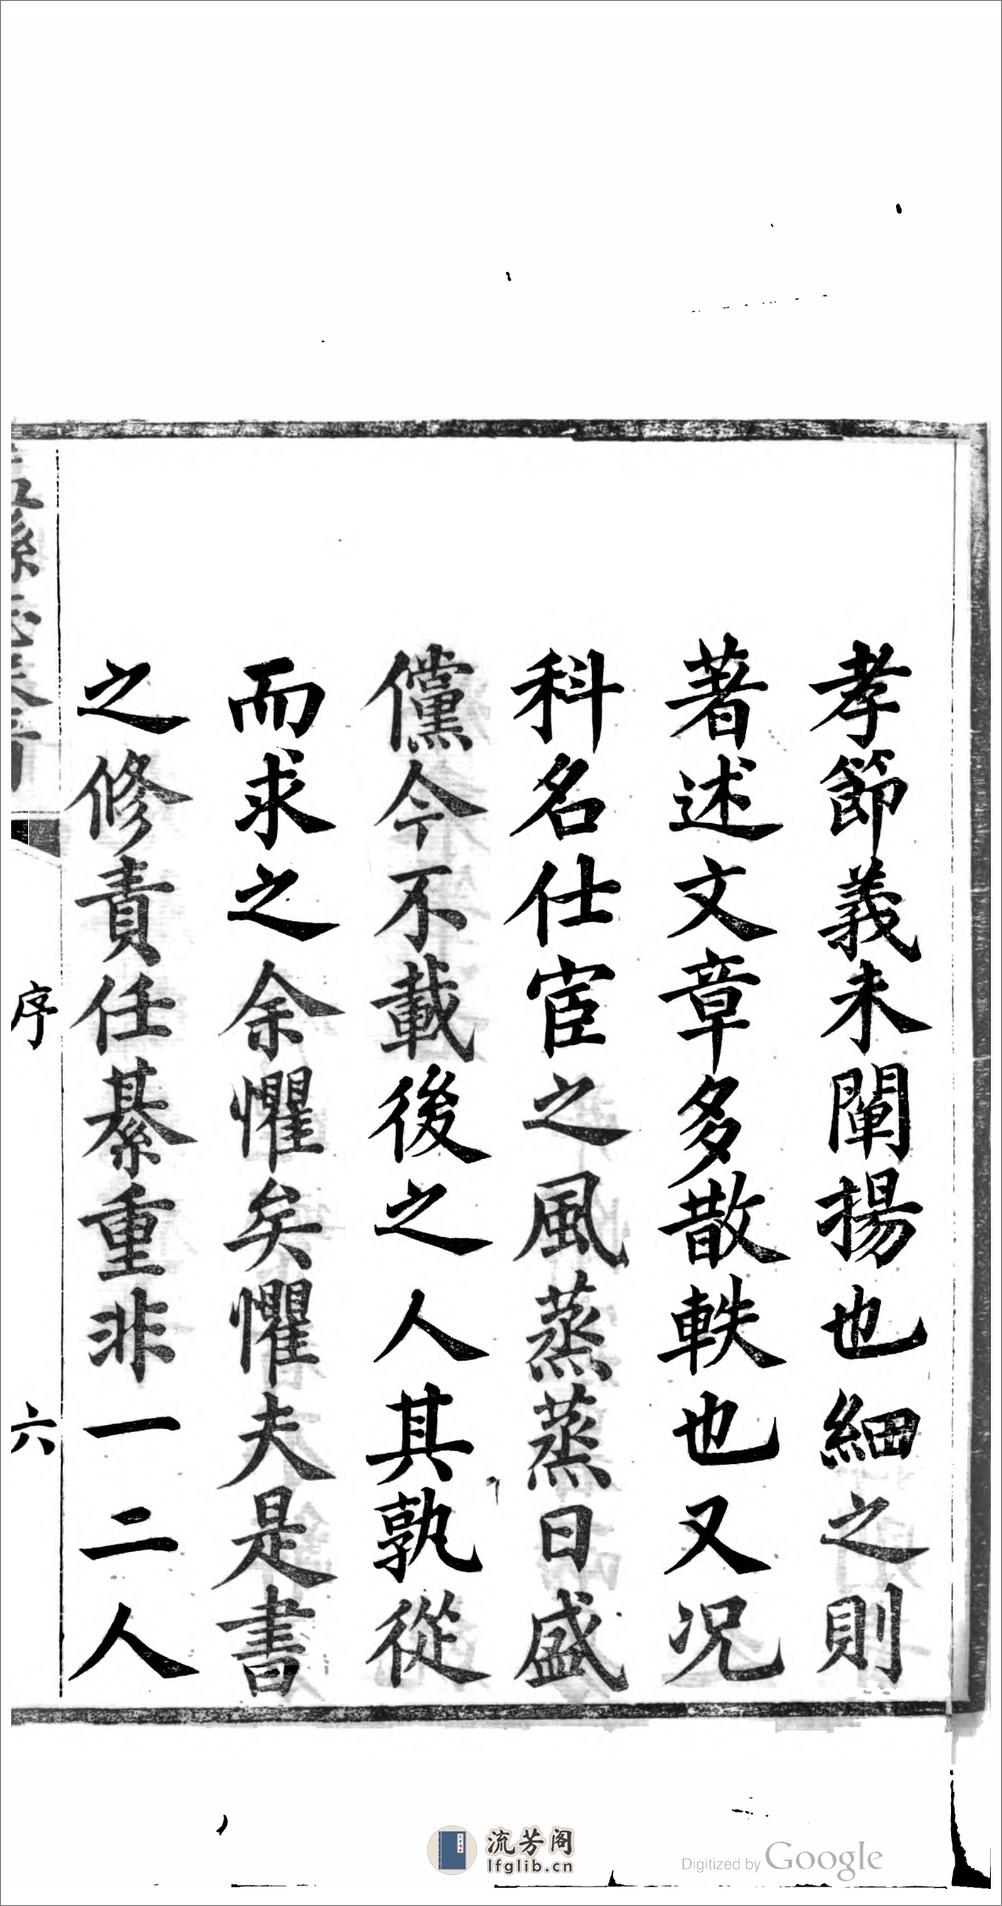 孝節義未闡揚也細之則
著述文章多散軼也又况
科名仕宦之風蒸蒸日盛
儻今不載後之人其孰從
而求之余懼矣懼夫是書
之修責任綦重非一二人
序
六
流芳阁
lfglib.cn
Digitized by Google